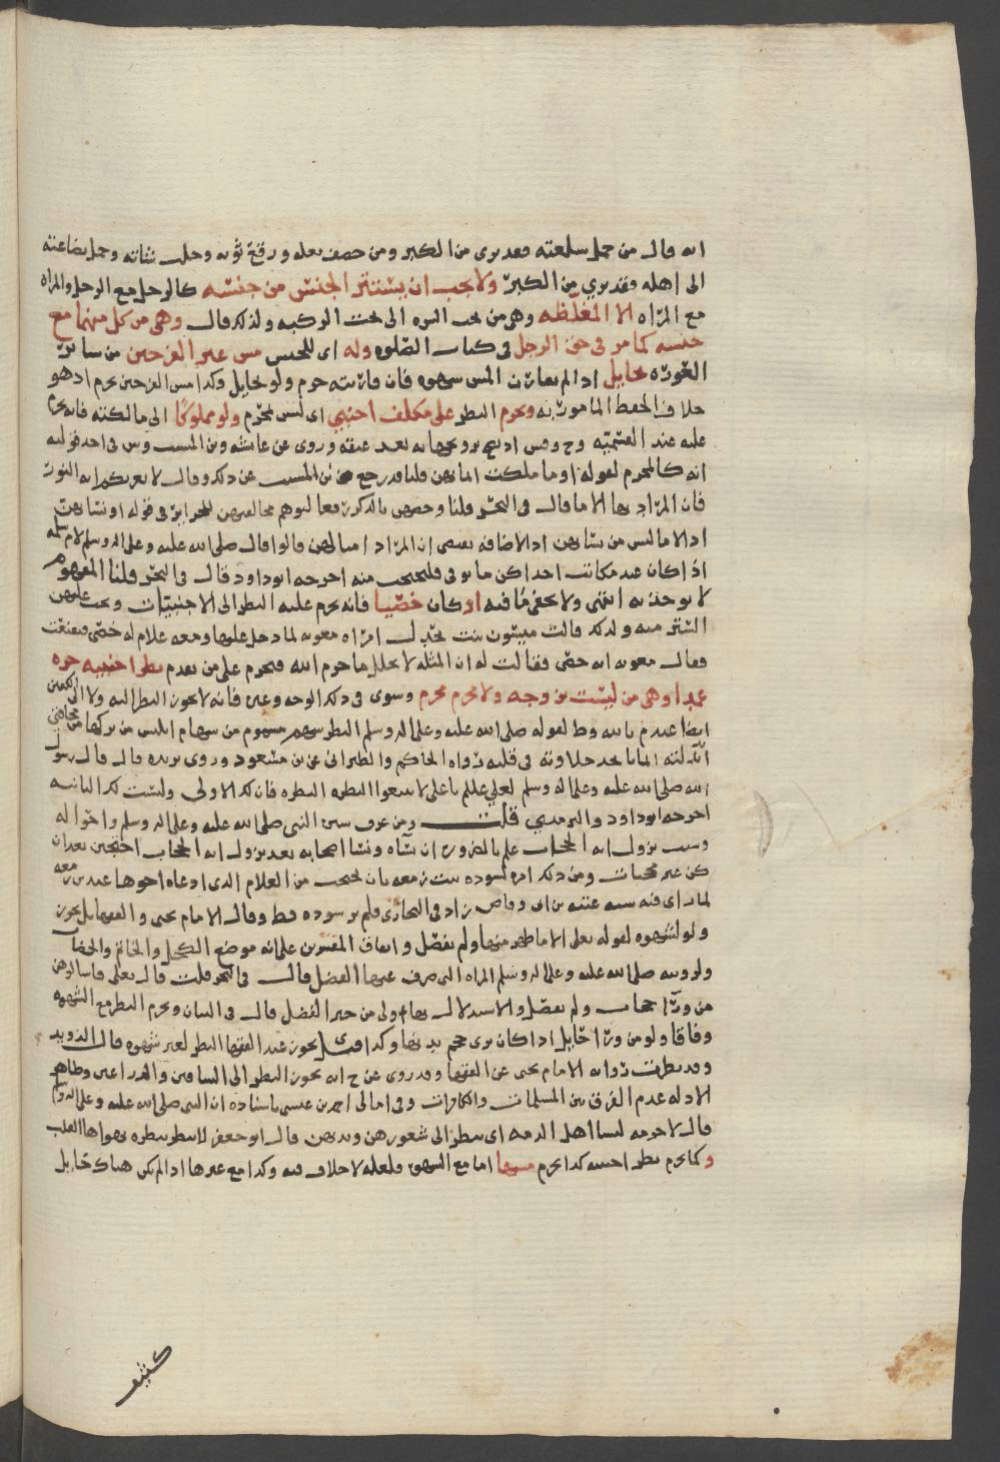 انه قال من حمل سلعته فقد برى من الكبر ومن خصف نعله ورقع ثوبه وحلب شاته وحمل بضاعته
الى اهله فقد بري من الكبر ولا يجب ان يستتر الجنس من جنسه كالرجل مع الرجل والمراه
مع المراه الا المغلظه وهى من تحت السره الى تحت الركبه ولذلك قال وهى من كل منهما مع
جنسه كما مر فى حق الرجل فى كتاب الصلوه وله اى للجنس مس غير الفرجين من ساتر
العوره بحايل اذا لم يقارن المس شهوه فان قارنته حرم ولو بحايل وكذا مس الفرجين يحرم اذ هو
خلاف الحفظ المامور به ويحرم النظر على مكلف اجنبي اى ليس بمحرم ولو مملوكا الى مالكته فانه يحرم
عليه عند العتميه وح وقس اذ يصح تزويجها به بعد عتقه وروى عن عائشه وبن المسيب وش فى احد قوليه
انه كالمحرم لقوله او ما ملكت ايمانهن قلنا قد رجع بن المسيب عن ذلك وقال لا يغرنكم ايه النور
فان المراد بها الاما قال فى البحر قلنا وخصهن بالذكر رفعا لتوهم مخالفتهن للحراير فى قوله او نسايهن
اذ الاما ليس من نسايهن اذ الاضافه تقتضى ان المراد امثالهن قالوا قال صلى الله عليه وعلى اله وسلم لام سلمه
اذا كان عند مكاتب احداكن ما يوفى فلتحتجب منه اخرجه ابو داود قال فى البحر قلنا المفهوم
لا يوخذ به انتهى ولا يخفى ما فيه او كان خصيا فانه يحرم عليه النظر الى الاجنبيات ويجب عليهن
التستر منه ولذلك قالت ميسون بنت بحدل امراه معويه لما دخل عليها ومعه غلام له خصى فتقنعت
فقال معويه انه خصى فقالت له ان المثله لا تحلل ما حرم الله فيحرم على من تقدم نظر اجنبيه حره
عمدا وهى من ليست بزوجه ولا محرم محرم وسوى فى ذلك الوجه وغيره فانه لا يجوز النظر اليه ولا الى الكفين
ايضا عند م بالله وط لقوله صلى الله عليه وعلى اله وسلم النظر سهم مسموم من سهام ابليس من تركها من مخافتي
ابدلته ايمانا يجد حلاوته فى قلبه رواه الحاكم والطبرانى عن بن مسعود وروى بريده قال قال رسول
الله صلى الله عليه وعلى اله وسلم لعلي عليلم يا على لا تتبعوا النظره النظره فان لك الاولى وليست لك الثانيه
اخرجه ابو داود والترمدي قلت ومن عرف سيره النبى صلى الله عليه وعلى اله وسلم واحواله
وسبب نزول ايه الحجاب علم بالضروره ان نساه ونسا اصحابه بعد نزول ايه الحجاب احتجبن بعد ان
كن غير محجبات ومن ذلك امره لسوده بنت زمعه بان تحتجب من الغلام الذى ادعاه اخوها عبد بن زمعه
لما راى فيه شبه عتبه بن ابى وقاص زاد فى البخارى فلم تر سوده قط وقال الامام يحيى والفقها بل يجوز
ولو لشهوه لقوله تعلى الا ما ظهر منها ولم يفصل واتفاق المفسرين على انه موضع الكحل والخاتم والخضاب
ولرويته صلى الله عليه وعلى اله وسلم المراه التى صرف عنها الفضل قال فى البحر قلت قال تعلى فاسالوهن
من ورآ حجاب ولم يفصل والاستدلال بها اولى من خبر الفضل قال فى البيان ويحرم النظر مع الشهوه
وفاقا ولو من ورا حايل اذا كان يرى حجم بدنها وكذا يجوز عند الفقها النظر لغير شهوه قال الدويد
وقد نظرت روايه الامام يحيى عن الفقها وقد روى عن ح انه يجوز النظر الى الساقين والذراعين وظاهر
الادله عدم الفرق بين المسلمات والكافرات وفى امالى احمد بن عيسى باسناده ان النبى صلى الله عليه وعلى اله وسلم
قال لا حرمه لنسا اهل الذمه اى ينظر الى شعورهن ويديهن قال ابو جعفر لا ينظر نظره يهواها القلب
وكما يحرم نظر اجنبيه كذا يحرم مسها اما مع الشهوه فلعله لا خلاف فيه وكذا مع غيرها اذا لم يكن هناك حايل
كثيف